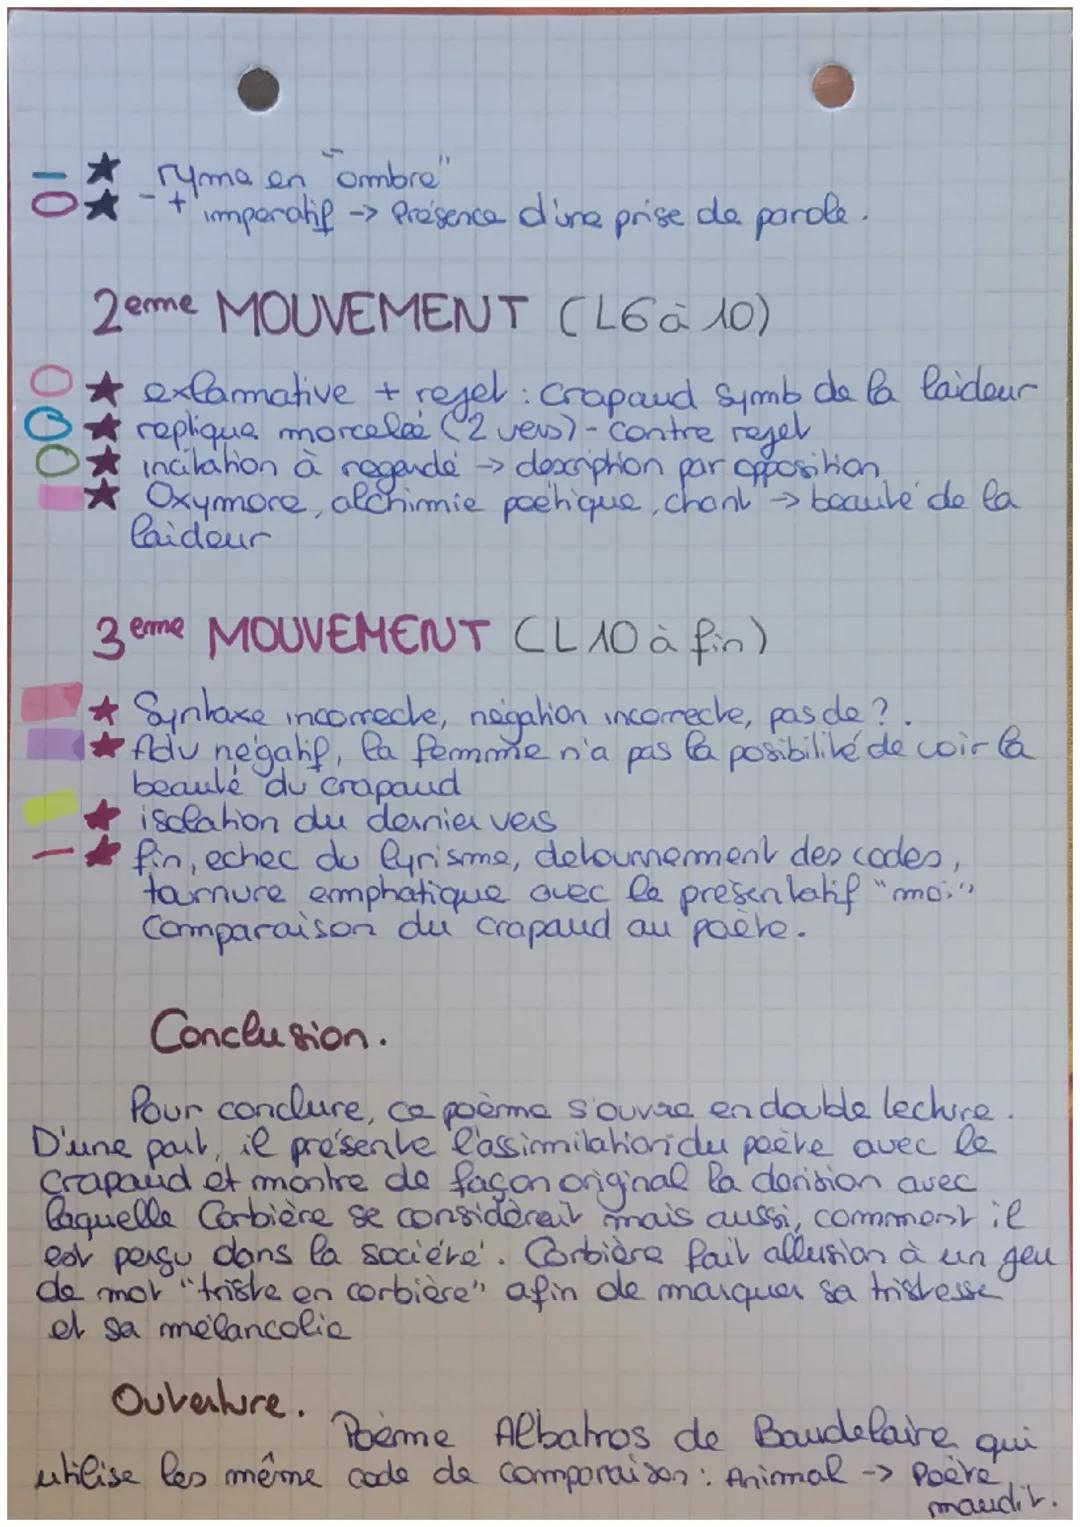 ryme en "ombre"
- + imperatif -> Présence d'une prise de parole.
2eme MOUVEMENT (L6 à 10)
exlamative + rejet : Crapaud symb de la laideur
replique morcelée (2 vers) - contre rejet
incitation à regardé -> description par opposition
Oxymore, alchimie poétique, chant -> beauté de la
laideur
3eme MOUVEMENT (L10 à fin)
Syntaxe incorrecte, négation incorrecte, pas de ?.
Adv négatif, la femme n'a pas la posibilité de voir la
beauté du crapaud
isolation du dernier vers
fin, echec du lyrisme, detournement des codes,
tournure emphatique avec le présentatif "moi"
Comparaison du crapaud au poète.
Conclusion.
Pour conclure, ce poème s'ouvre en double lecture.
D'une part, il présente l'assimilation du poète avec le
crapaud et montre de façon original la dérision avec
laquelle Corbière se considèrait mais aussi, comment il
est perçu dans la société. Corbière fait allusion à un jeu
de mot "triste en corbière" afin de marquer sa tristesse
et sa mélancolie
Ouverture.
Poème Albatros de Baudelaire qui
utilise les même code de comparaison : Animal -> Poète
maudit.